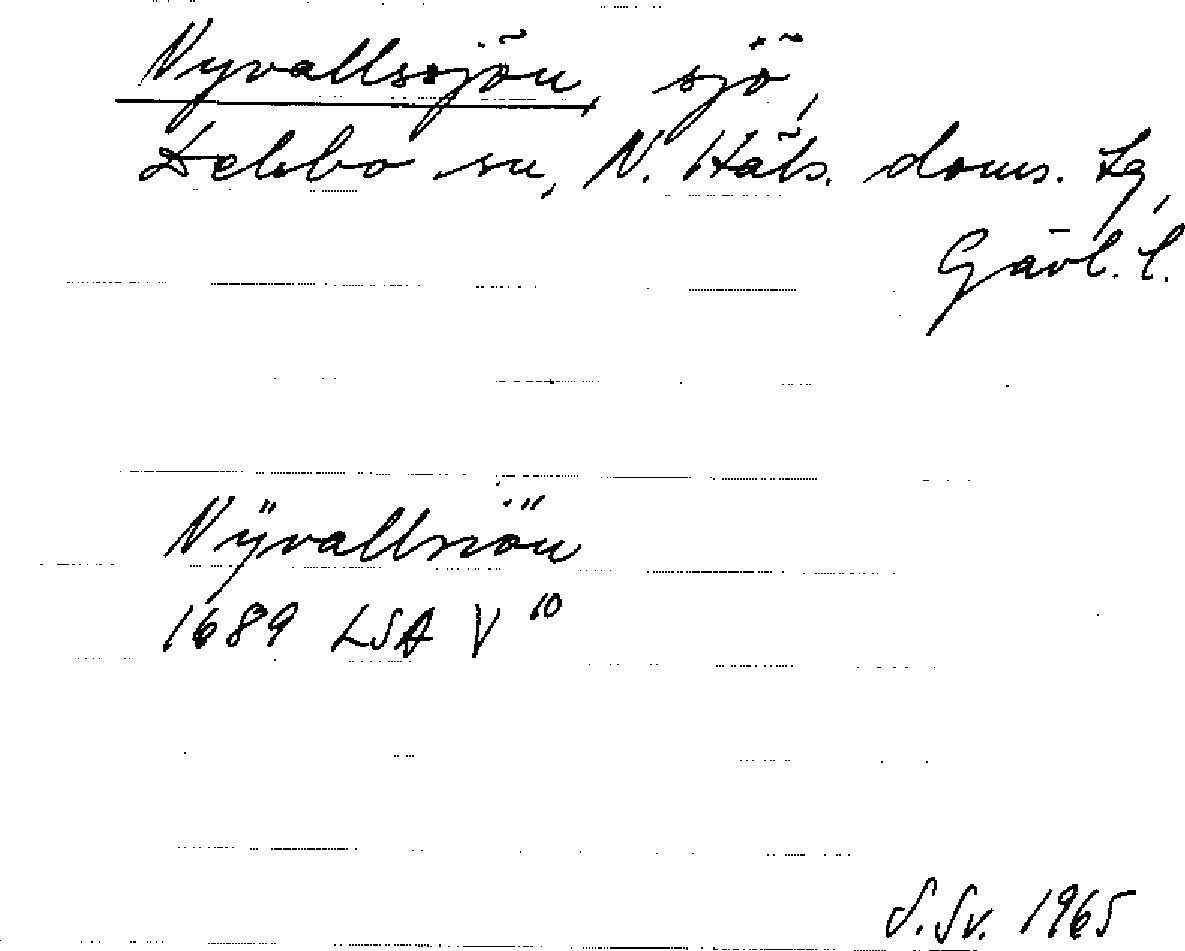 Nyvallssjön, sjö,
Delsbo sn, N. Häls. doms. Lg,
Gävl. l.
Nÿvallsiön
1689 LSA V 10
S. Sv. 1965